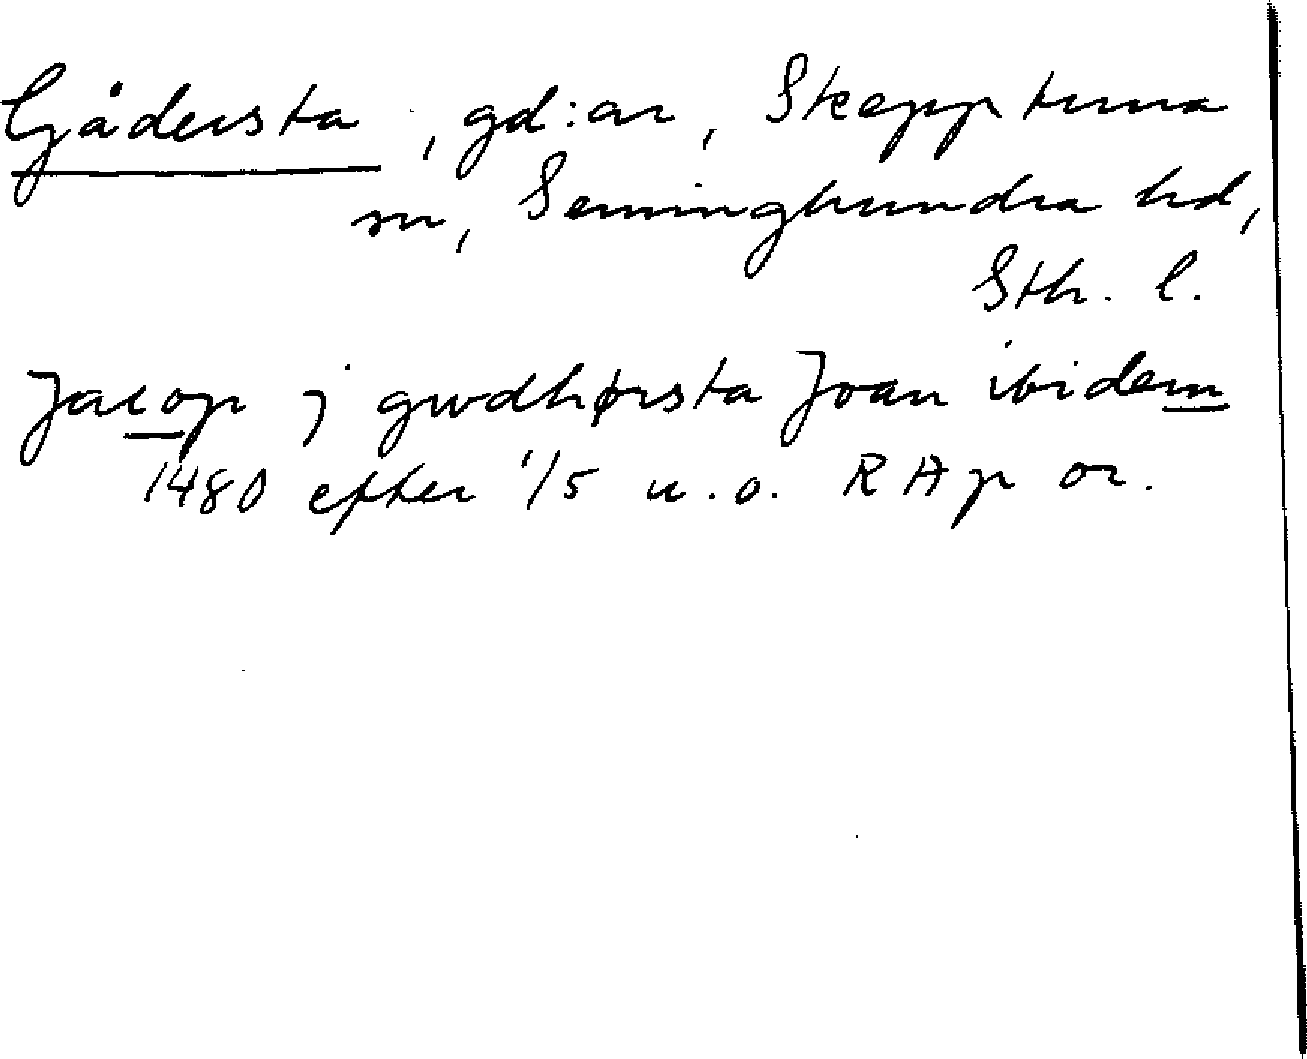 Gådersta, gd:ar, Skepptuna
sn, Seminghundra hd,
Sth. l.
Jacop j gwdhørsta Joan ibidem
1480 efter 1/5 u.o. RAp or.